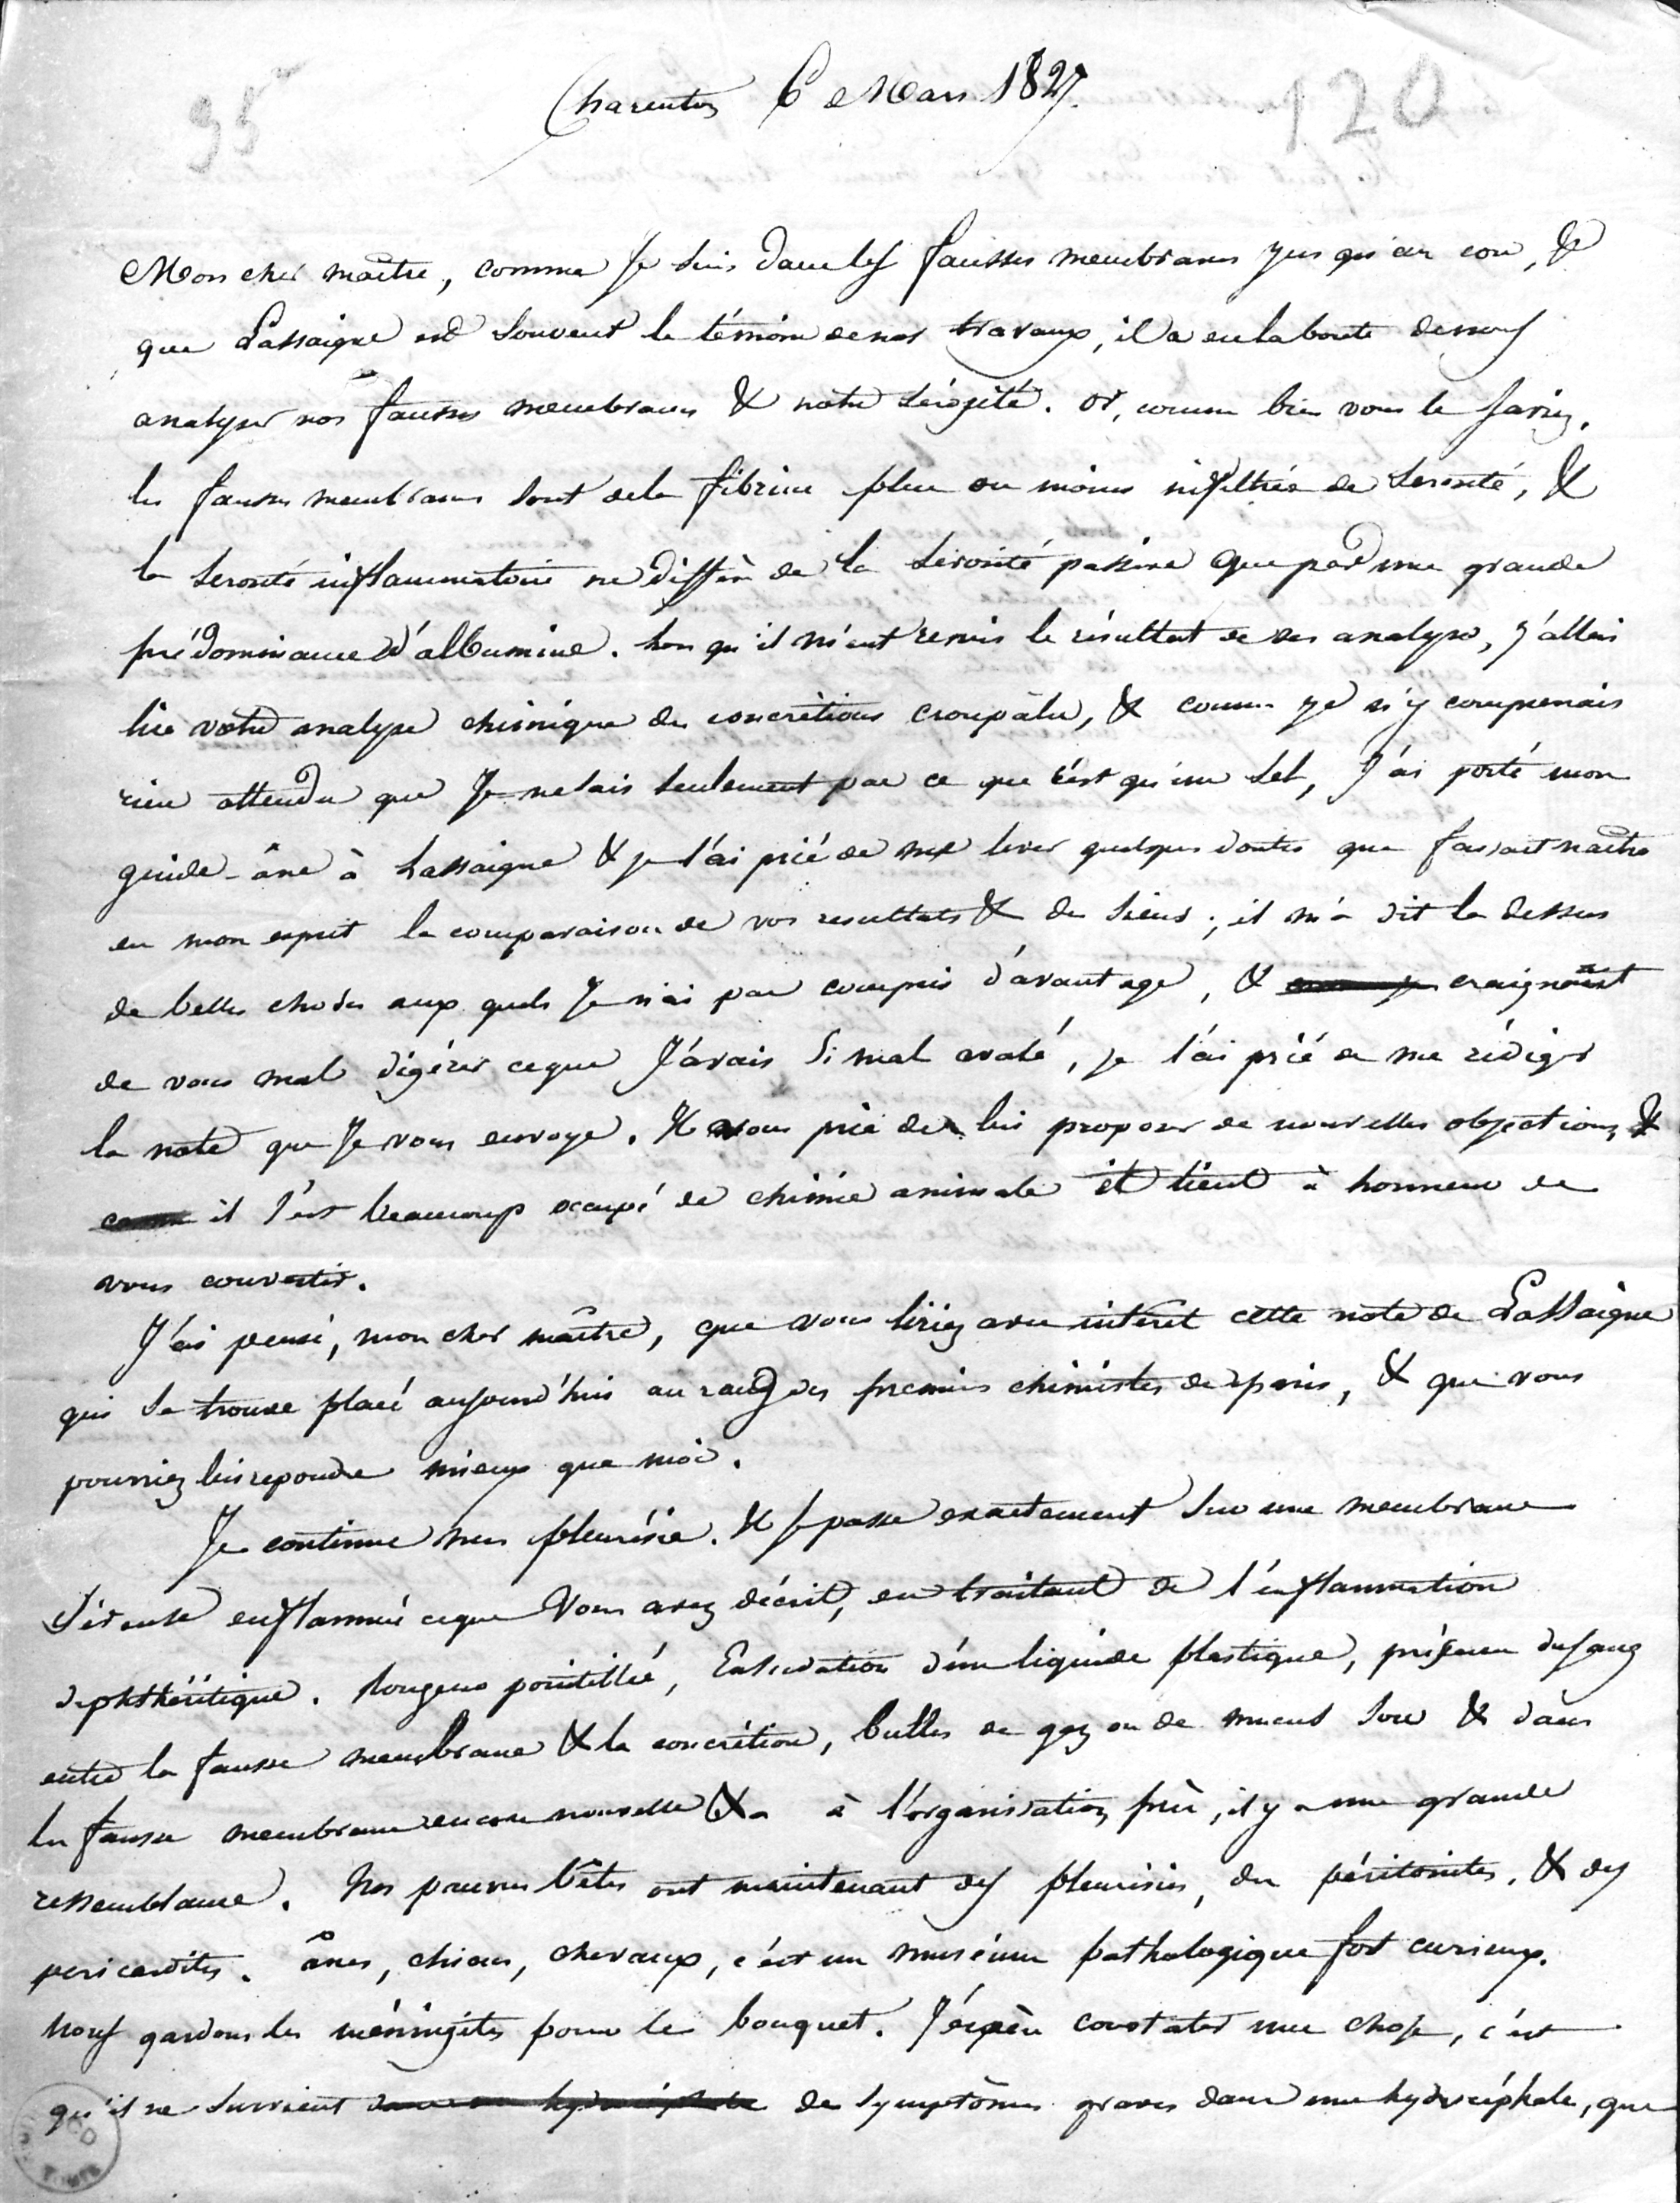 95
120
Charenton 6 Mars 1827.
Mon cher maître, comme Je suis dans les fausses membranes jus qu'au cou, &
que Lassaigne est souvent le témoin de nos travaux, il a eu la bonté de nous
analyser nos fausses membranes & notre sérosité. or, comme bien vous le saviez,
les fausses membranes sont de la fibrine plus ou moins infiltrée de serosité, &
la serosité inflammatoire ne diffère de la serosité passive que par une grande
prédominance d'albumine. lors qu'il m'eut remis le résultat de ses analyses, j'allai
lire votre analyse chimique des concrétions croupales, & comme je n'y comprenais
rien attendu que Je ne sais seulement pas ce que c'est qu'un sel, J'ai porté mon
guide-âne à Lassaigne & je l'ai prié de me lever quelques doutes que faisait naître
en mon esprit la comparaison de vos resultats & des siens; il m'a dit la dessus
de belles choses aux quels Je n'ai pas compris d'avantage, & craignant
de vous mal digérer ce que J'avais si mal avalé, je l'ai prié de me rédiger
la note que Je vous envoye. Il vous prie de lui proposer de nouvelles objections, &
il s'est beaucoup occupé de chimie animale et tient à honneur de
vous convertir.
J'ai pensé, mon cher maître, que vous liriez avec intérêt cette note de Lassaigne
qui se trouve placé aujourd'hui au rang des premiers chimistes de paris, & que vous
pourriez lui repondre mieux que moi.
Je continue mes pleurésies. Il se passe exactement sur une membrane
séreuse enflammée ce que vous avez décrit, en traitant de l'inflammation
diphthéritique. Rougeur pointillée, Exsudation d'un liquide plastique, présence du sang
entre la fausse membrane & la concrétion, bulles de gaz ou de mucus sous & dans
les fausses membranes encore nouvelles &a à l'organisation près, il y a une grande
ressemblance. Nos pauvres bêtes ont maintenant des pleurésies, des péritonites, & des
pericardites. ânes, chiens, chevaux, c'est un muséum pathologique fort curieux.
nous gardons les méningites pour le bouquet. J'éspère constater une chose, c'est
qu'il ne survient de symptômes graves dans une hydrocéphale, que